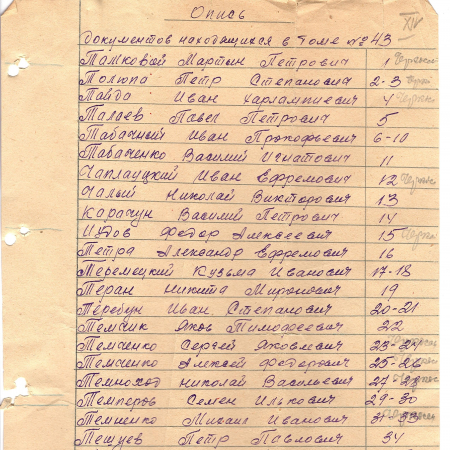 Опись
XIV
документов находящихся в Томе № 43
Тамковой Мартын Петрович 1
Толюпа Петр Степанович 2-3
Тайда Иван Харлампиевич 4
Талаев Павел Петрович 5
Табачный Иван Прокофьевич 6-10
Табаченко Василий Игнатович 11
Чаплауцкий Иван Ефремович 12
Чалый Николай Викторович 13
Карачун Василий Петрович 14
Федор Алексеевич 15
Петра Александр Ефремович 16
Теремецкий Кузьма Иванович 17-18
Теран Никита Миронович 19
Теребун Иван Степанович 20-21
Темчик Яков Тимофеевич 22
Темченко Сергей Яковлевич 23-24
Темченко Алексей Федорович 25-26
Темноход Николай Васильевич 27-28
Темперов Семен Илькович 29-30
Темненко Михаил Иванович 31-33
Тешуев Петр Павлович 34